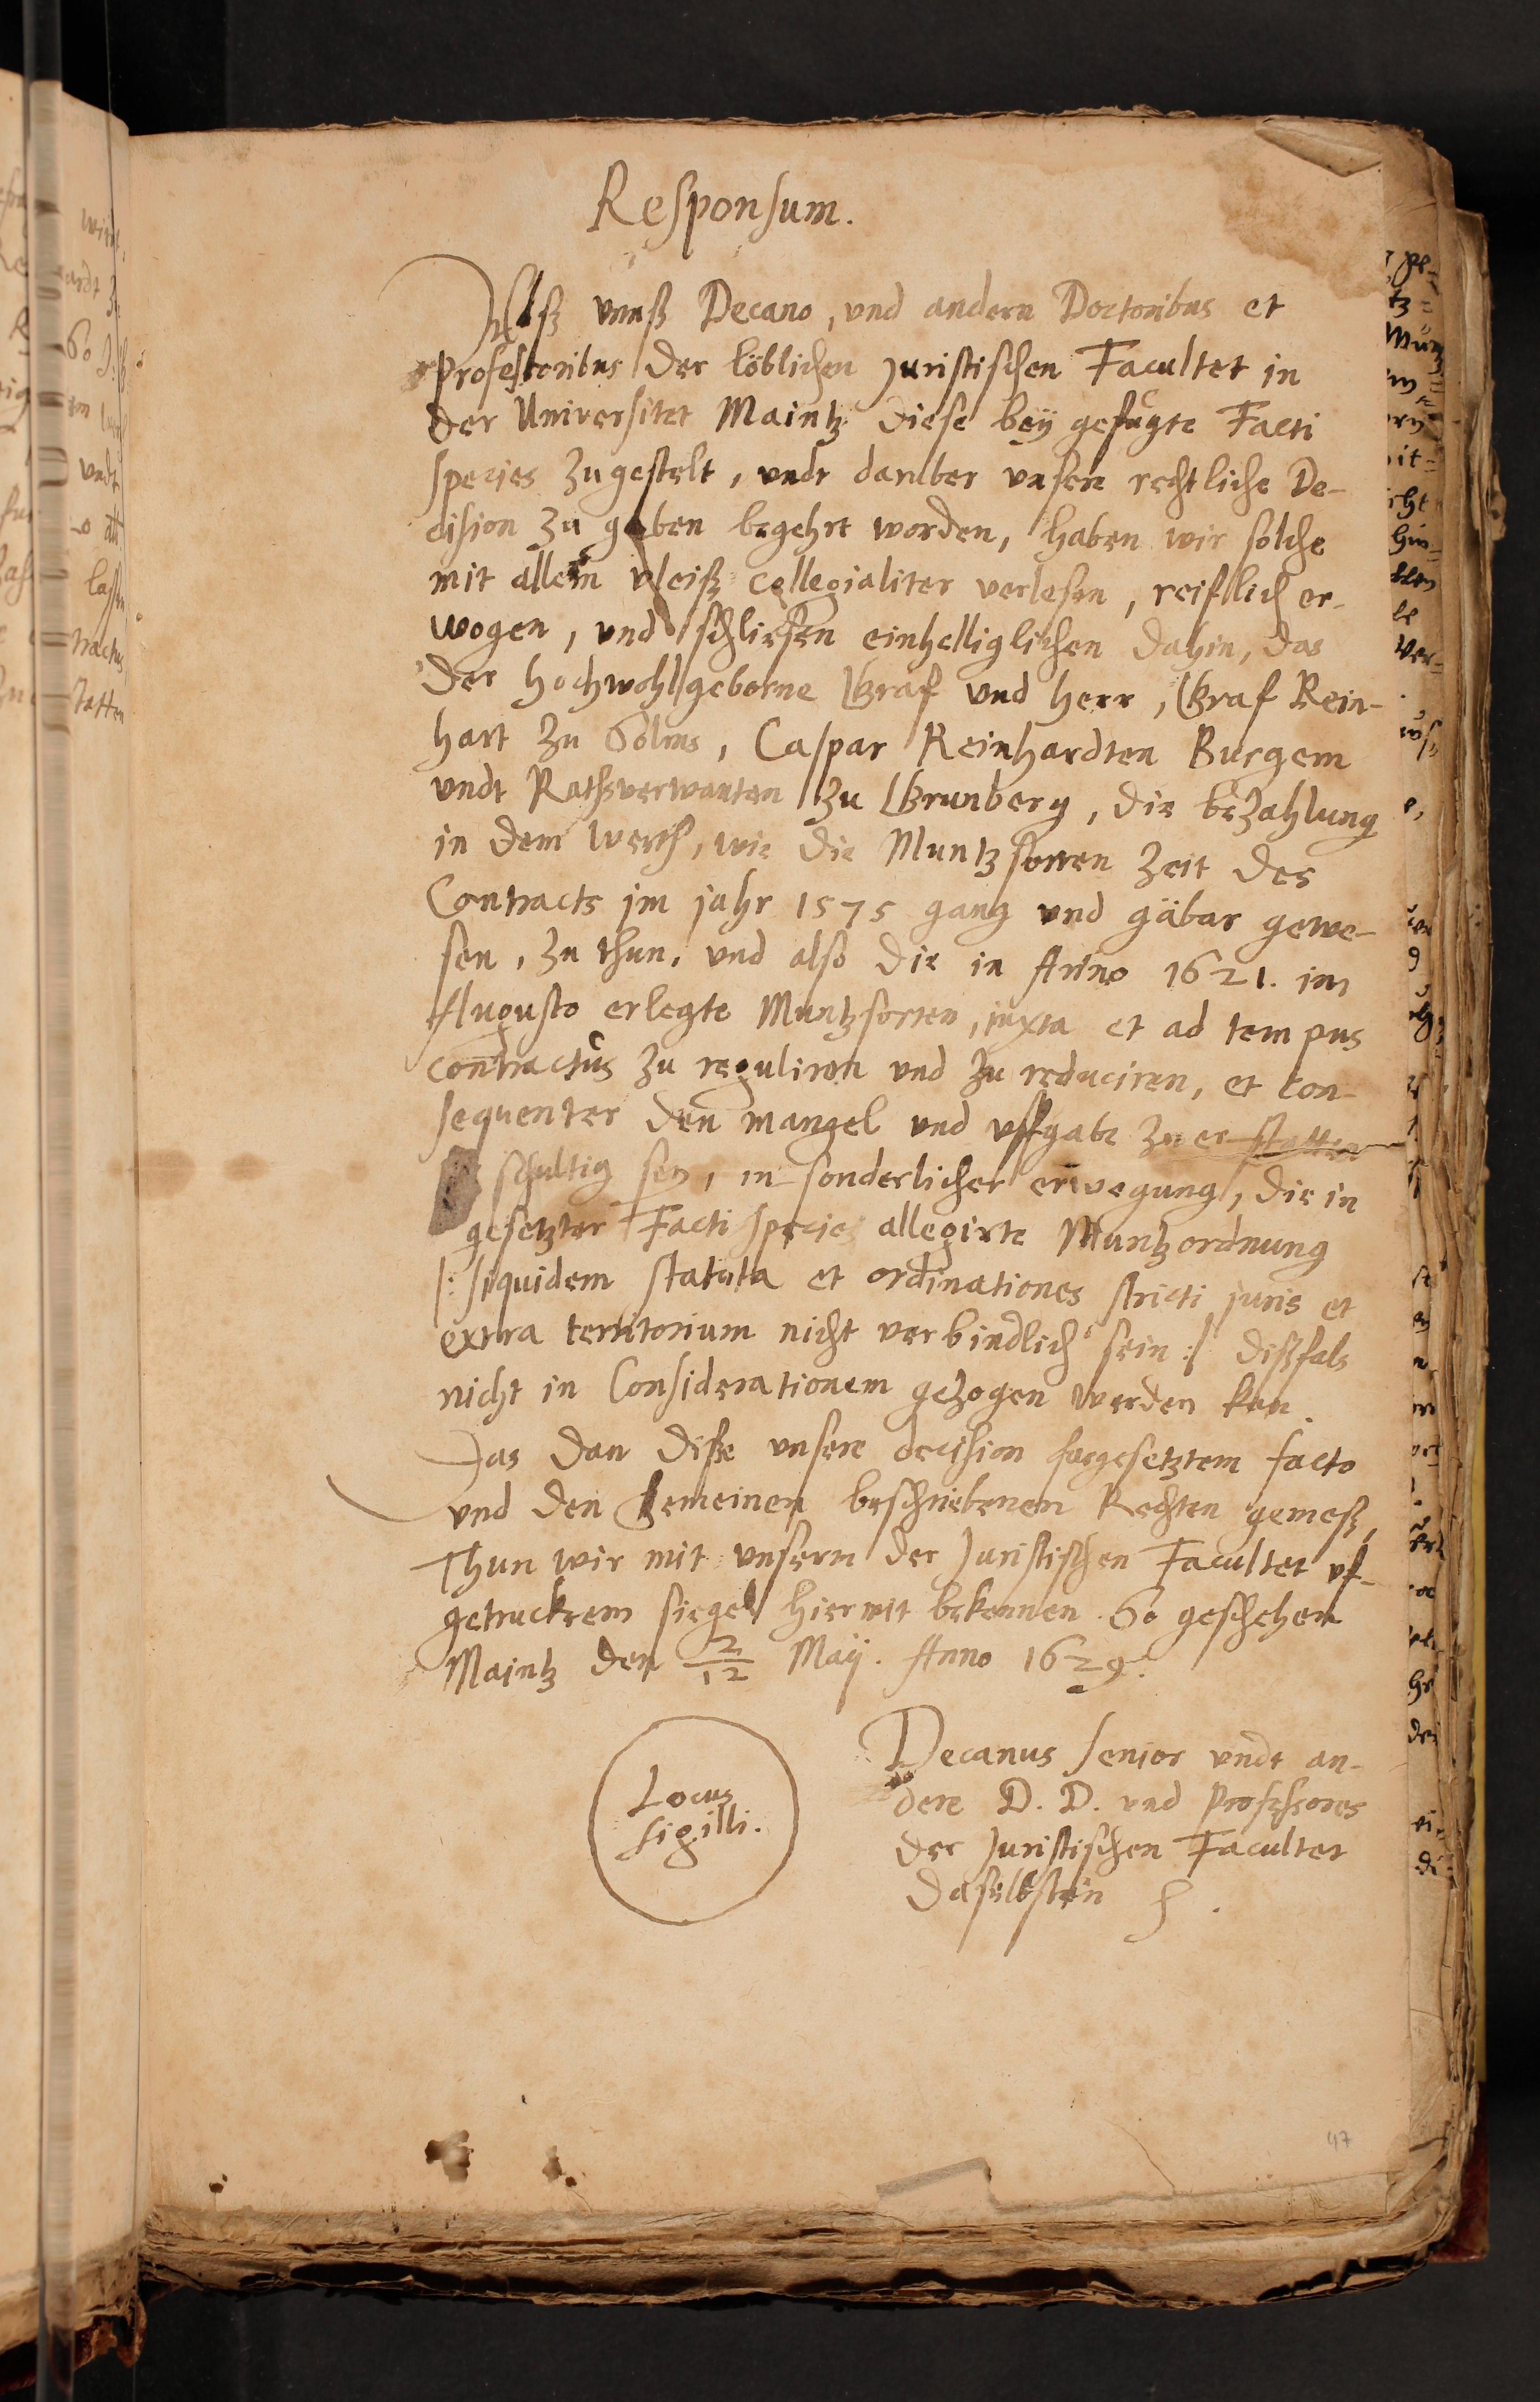 Responsum.
Alß vnnß Decano, und andern Doctoribus et
Professoribus der löblichen Juristischen Facultet in
der Universitet Maintz diese beÿ gefügte Facti
species zugestelt, undt darüber unsere rechtliche De-
cision zu geben begehrt worden, haben wir solche
mit allem vleiß collegialiter verlesen, reifflich er-
wogen, und schliesen einhelliglichen dahin, das
der hochwohlgeborne Graf und Herr, Graf Rein-
hart zu Solms, Caspar Reinhardten Burgern
undt Rathsverwanten zu Grunberg, die bezahlung
in dem werth, wie die Muntzsorten zeit des
Contracts im jahr 1575 gang und gäbar gewe-
sen, zu thun, und also die in Anno 1621. im
Augusto erlegte Muntzsorten, juxta et ad tempus
contractûs zu reguliren und zu reduciren, et con-
sequenter den mangel und uffgabe zu erstatten
schultig sey, in sonderlicher erwegung, die in
gesetzter Facti species allegirte Muntzordnung
|: siquidem statuta et ordinationes stricti juris et
extra territorium nicht verbindlich sein :| dißfals
nicht in Considerationem gezogen werden kan.
Das dan diße unsere decision fürgesetztem facto
und den Gemeinen beschriebenen Rechten gemeß,
Thun wir mit unserm der Juristischen Facultet uf-
getrucktem siegel hiermit bekennen. So geschehen
Maintz den 2/12 Maÿ. Anno 1629.
Locus
sigilli.
Decanus senior undt an-
dere D. D. und Professores
der Juristischen Facultet
daselbsten
47